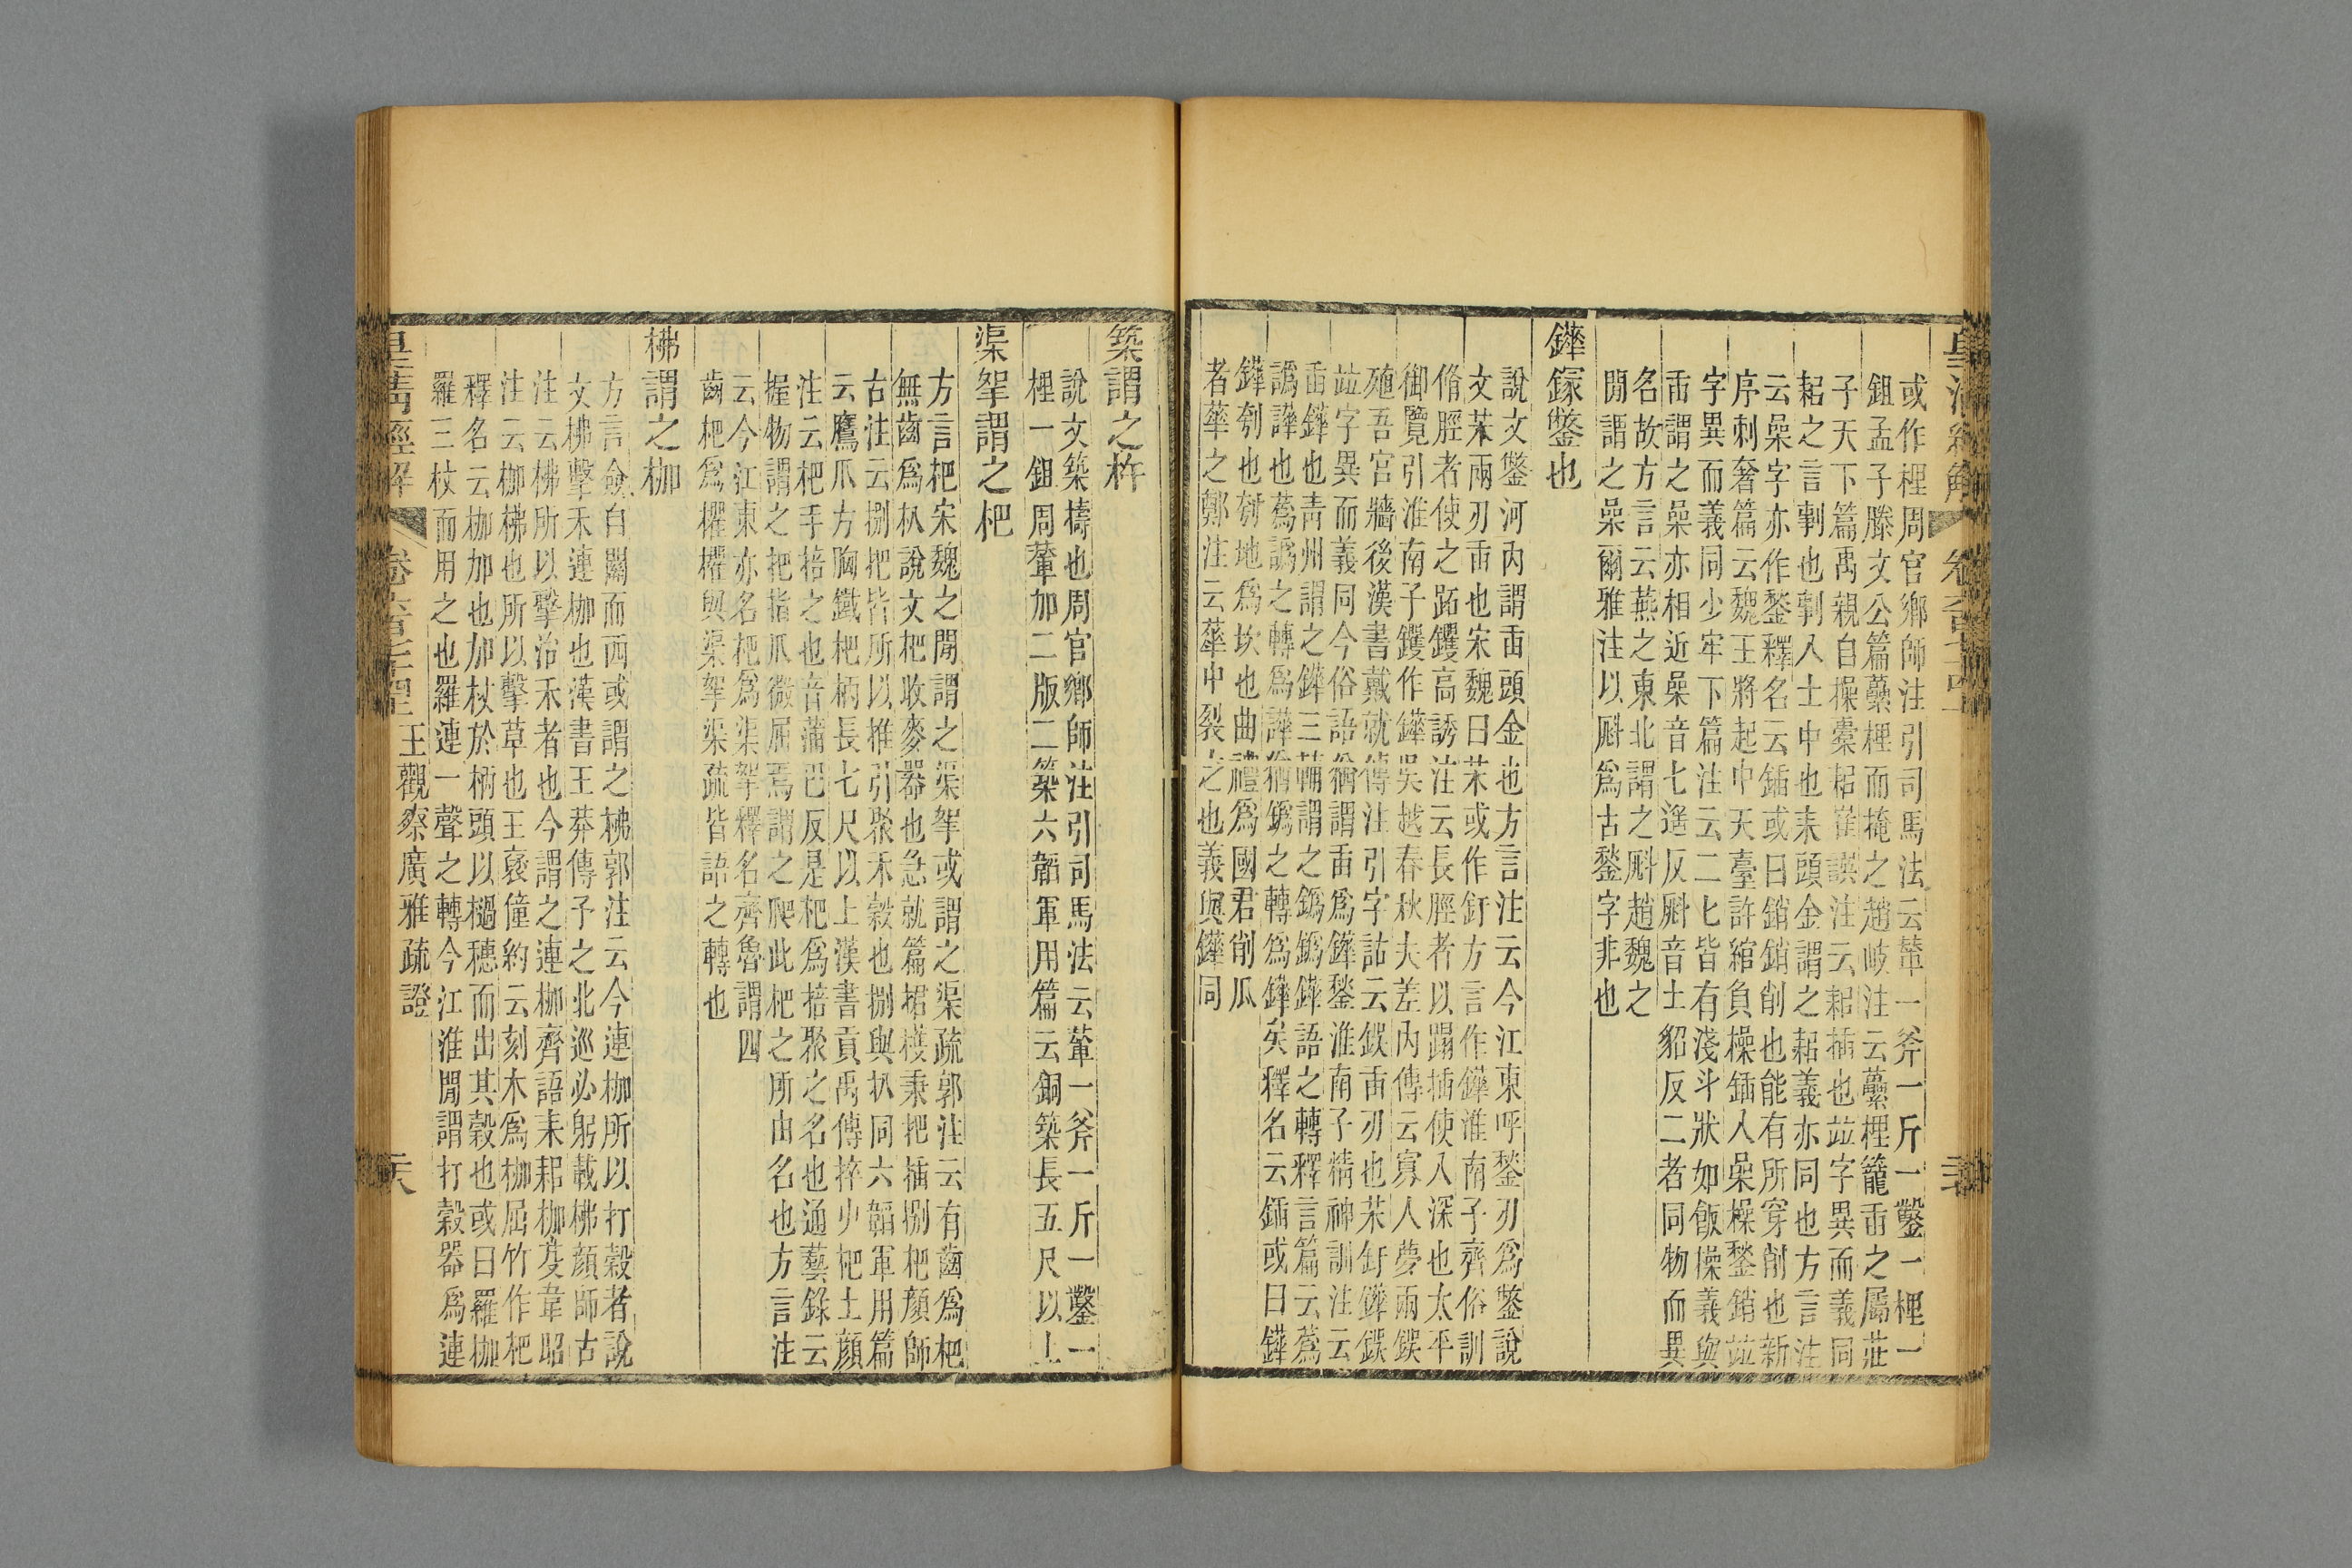 或作梩周官鄉師注引司馬法云輂一斧一斤一鑿一梩一
鉏孟子滕文公篇虆梩而掩之趙岐注云虆梩籠臿之屬莊
子天下篇禹親自操橐耜崔譔注云耜插也竝字異而義同
耜之言剚也剚入土中也耒頭金謂之耜義亦同也方言注
云喿字亦作鍫釋名云鍤或曰銷銷削也能有所穿削也新
序刺奢篇云魏王將起中天臺許綰負操鍤入喿橾鍫銷竝
字異而義同少牢下篇注云二匕皆有淺斗狀如飯橾義與
臿謂之喿亦相近喿音七遙反㪺音土貂反二者同物而異
名故方言云燕之東北謂之㪺趙魏之
閒謂之喿爾雅注以㪺爲古鍫字非也
鏵鎵鐅也
說文鐅河內謂臿頭金也方言注云今江東呼鍫刃爲鐅說
文茉兩刃臿也宋魏曰茉或作釫方言作鏵淮南子齊俗訓
脩脛者使之跖钁高誘注云長脛者以蹋插使入深也太平
御覽引淮南子钁作鏵吳越春秋夫差內傳云寡人夢兩鋘
殖吾宮牆後漢書戴就傳注引字詁云鋘臿刃也茉釫鏵鋘
竝字異而義同今俗語猶謂臿爲鏵鍫淮南子精神訓注云
臿鏵也靑州謂之鏵三輔謂之鐫鏵語之轉釋言篇云蔿
譌譁也蔿譌之轉爲譁猶鐫之轉爲鏵矣釋名云鍤或曰鏵
鏵刳也刳地爲坎也曲禮爲國君削瓜
者華之鄭注云華中裂之也義與鏵同
築謂之杵
說文築擣也周官鄉師注引司馬法云輂一斧一斤一鑿一
梩一鉏周輂加二版二築六韜軍用篇云銅築長五尺以上
渠挐謂之杷
方言杷宋魏之閒謂之渠挐或謂之渠疏郭注云有齒爲杷
無齒爲朳說文杷收麥器也急就篇捃穫秉把插捌杷顏師
古注云捌杷皆所以推引聚禾穀也捌與朳同六韜軍用篇
云鷹爪方胸鐵杷柄長七尺以上漢書貢禹傳捽屮杷土顏
注云杷手掊之也音蒲巴反是杷爲掊聚之名也通藝錄云
握物謂之把指爪微屈焉謂之爬此杷之所由名也方言注
云今江東亦名杷爲渠挐釋名齊魯謂四
齒杷爲欋欋與渠挐渠疏皆語之轉也
柫謂之枷
方言僉自關而西或謂之柫郭注云今連枷所以打穀者說
文柫擊禾連枷也漢書王莽傳予之北巡必躬載柫顏師古
注云柫所以擊治禾者也今謂之連枷齊語耒耜枷芟韋昭
注云枷柫也所以擊草也王褒僮約云刻木爲枷屈竹作杷
釋名云枷加也加杖於柄頭以檛穗而出其穀也或曰羅枷
羅三杖而用之也羅連一聲之轉今江淮閒謂打穀器爲連
皇清經解 卷六百七十四上 王觀察廣雅疏證 二六